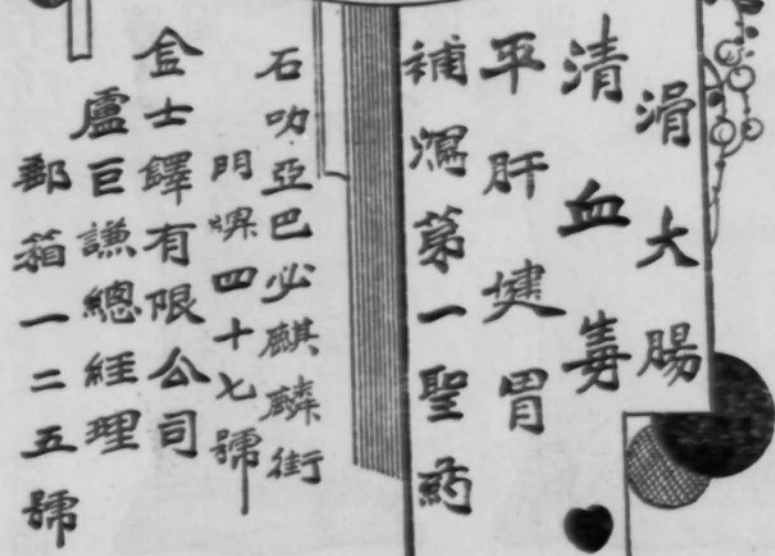 涓大腸
清血毒
平肝健胃
補瀉第一聖葯
石叻亞巴必麒麟街
門牌四十七號
金士鐸有限公司
盧巨謙總經理
郵箱一二五號